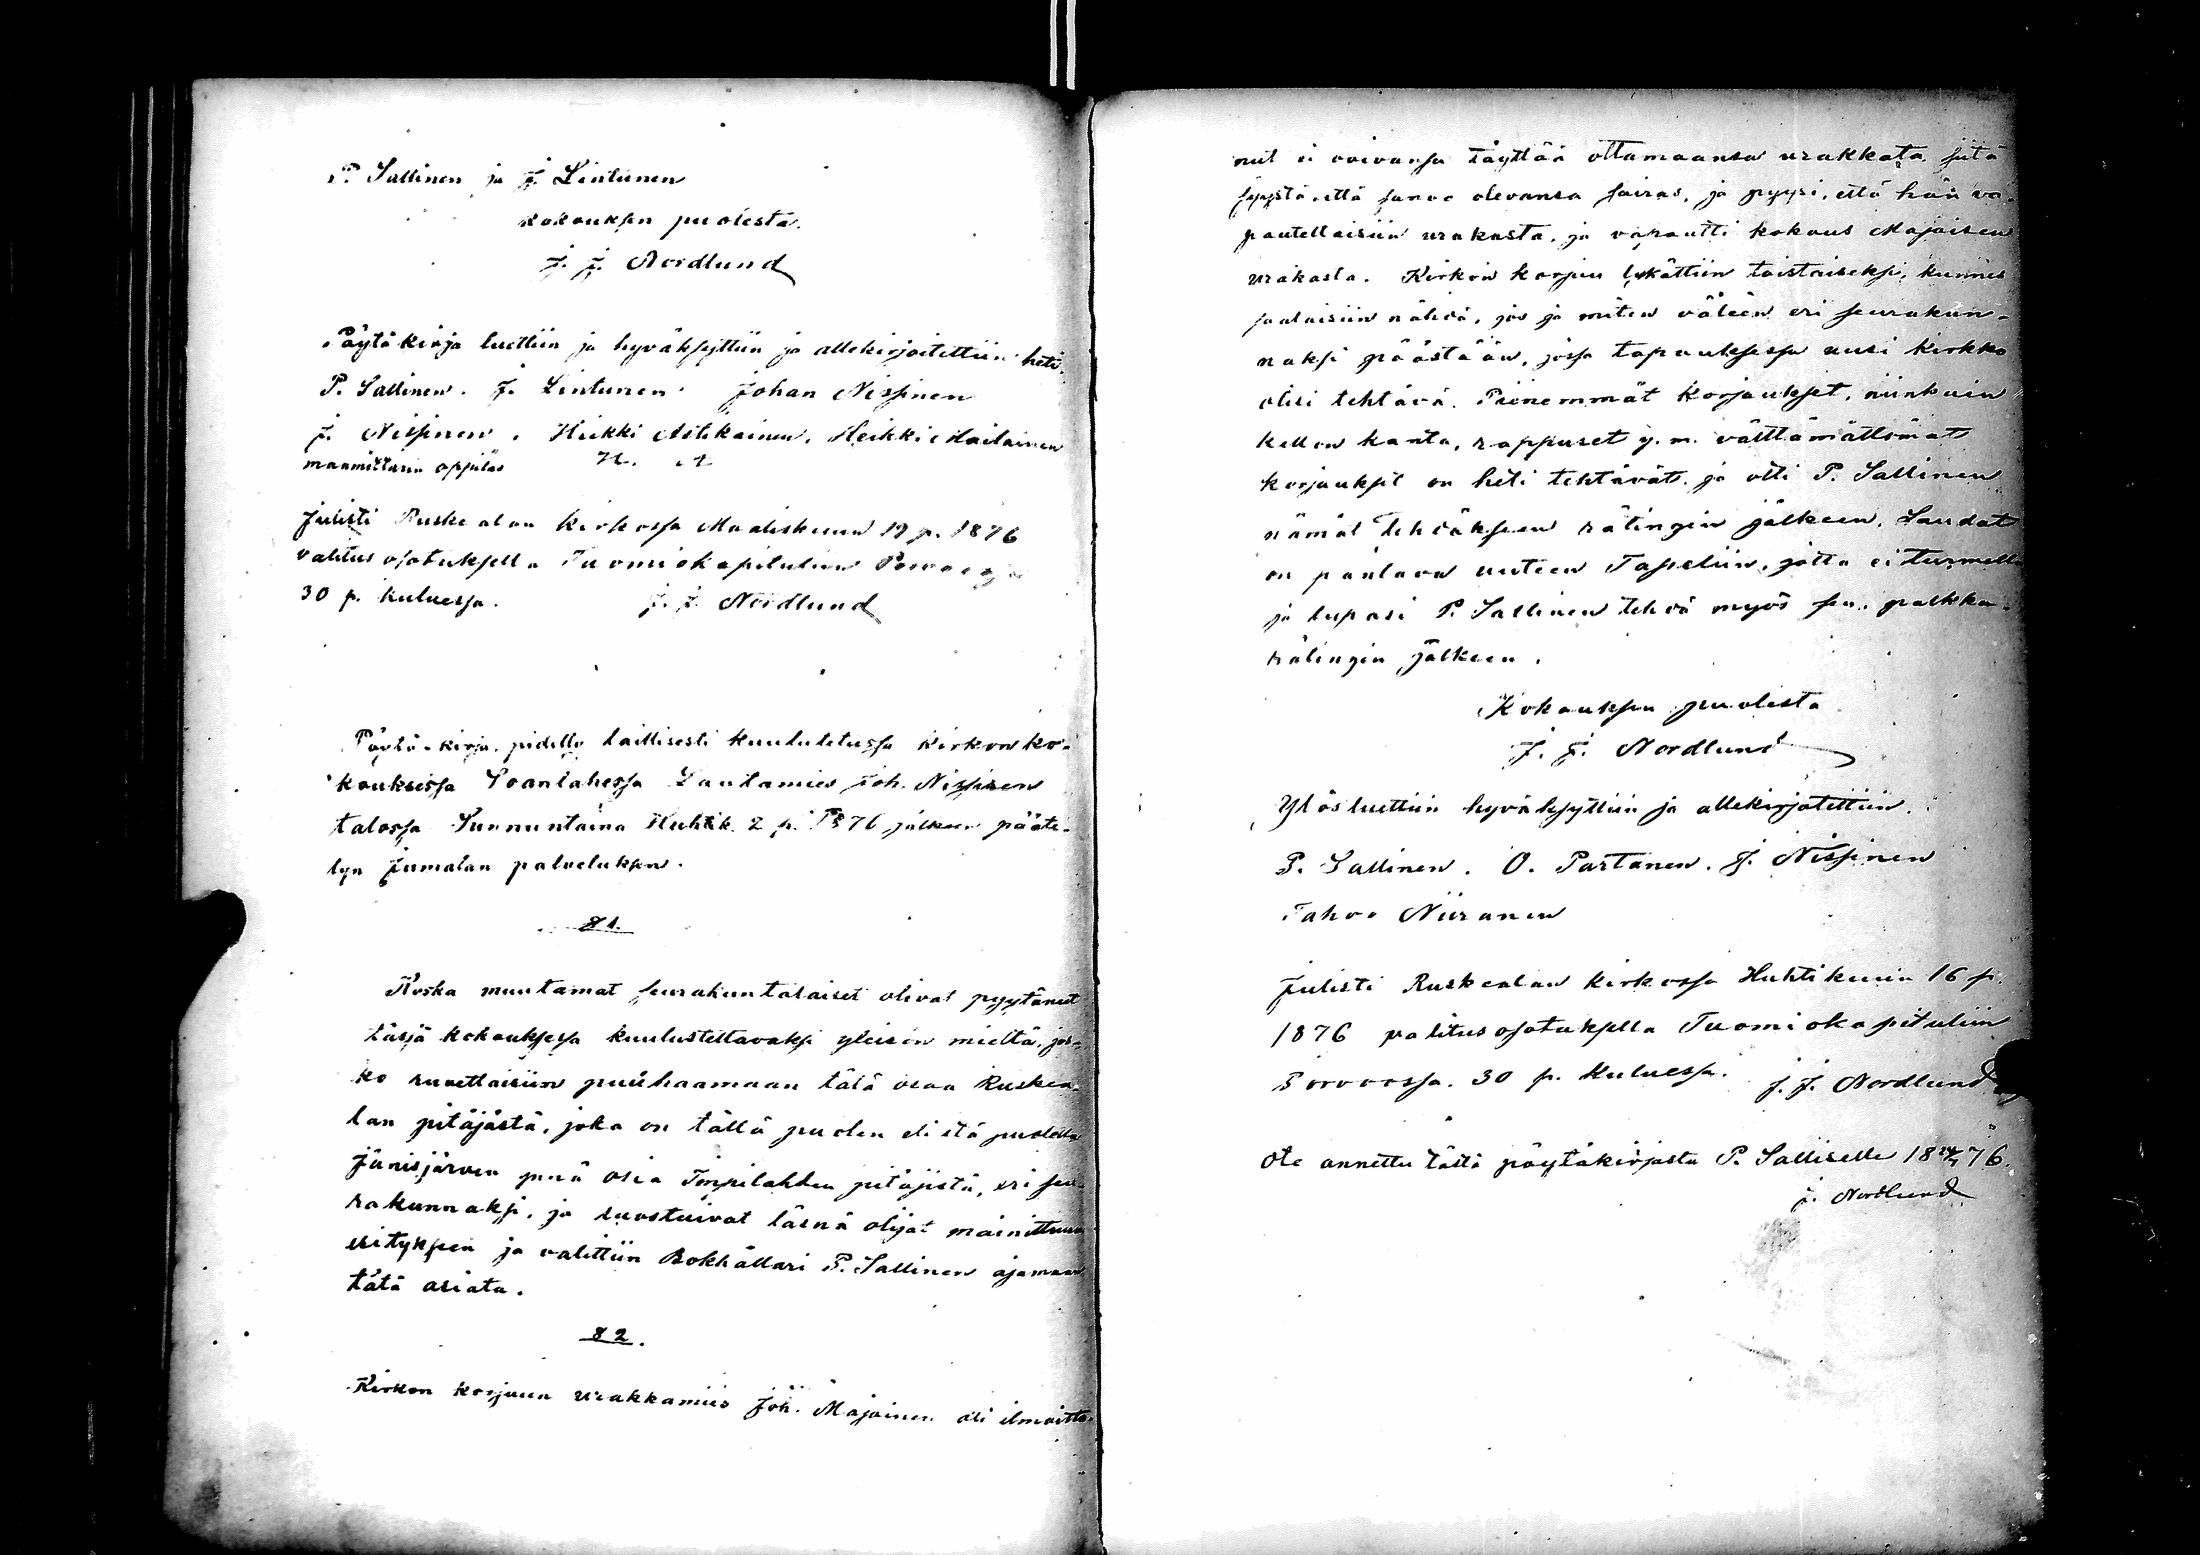 P. Sallinen ja J. Lintunen
kokouksen puolesta.
J. J. Nordlund
Pöytäkirja luettiin ja hyväksyttiin ja allekirjoitettiin heti.
P. Sallinen. J. Lintunen. Johan Nissinen
J. Nissinen. Heikki Astikainen. Heikki Mailainen
maamittarin oppilas
Julisti Ruskealan kirkossa Maaliskuun 19 p. 1876
valitus osotuksella Tuomiokapituliin
30 p. kuluessa. J. J. Nordlund
Pöytä-kirja pidetty laillisesti kuulutetussa kirkonko-
kouksessa Soanlahessa Lautamies Joh. Nissisen
talossa Sunnuntaina Huhtik. 2 p. 1876 jälkeen pääte-
lyn Jumalan palveluksen.
§ 1.
Koska muutamat seurakuntalaiset olivat pyytäneet
tässä kokouksessa kuulusteltavaksi yleisön mieltä, jos-
ko ruvettaisiin puuhaamaan tätä osaa Ruskea-
lan pitäjästä, joka on tällä puolen eli itä puolella
Jänisjärven ynnä osia Impilahden pitäjistä, eri seu-
rakunnaksi, ja suostuivat läsnä olijat mainittuun
esityksen ja valittiin Bokhållari P. Sallinen ajamaan
tätä asiata.
§ 2.
Kirkon korjuun urakkamies Joh. Majoinen oli ilmoitta-
nut ei voivansa täyttää ottamaansa urakkata sitä
syystä, että sanoo olevansa sairas, ja pyysi, että hän va-
pautettaisiin urakasta, ja vapautti kokous Majoisen
urakasta. Kirkon korjuu lykättiin toistaiseksi, kunnes
saataisiin nähdä, jos ja miten väleen eri seurakun-
naksi päästään, jossa tapauksessa uusi kirkko
olisi tehtävä. Pienemmät korjaukset, niinkuin
kellon kanta, rappuset y. m. välttämättömät
korjaukset on heti tehtävät, ja otti P. Sallinen
nämät tehdäksen rätingin jälkeen. Laudat
on pantava uuteen Tapeliin, jotta ei turmellu
ja lupasi P. Sallinen tehdä myös sen, palkka-
rätingin jälkeen.
Kokouksen puolesta
J. J. Nordlund
Ylösluettiin hyväksyttiin ja allekirjotettiin.
P. Sallinen. O. Partanen. J. Nissinen
Tahvo Niiranen
Julisti Ruskealan kirkossa Huhtikuun 16 p.
1876 valitusosotuksella Tuomiokapituliin
Porvoossa. 30 p. kuluessa. J. J. Nordlund
Ote annettu tästä pöytäkirjasta P. Salliselle 18 76.
J. Nordlund